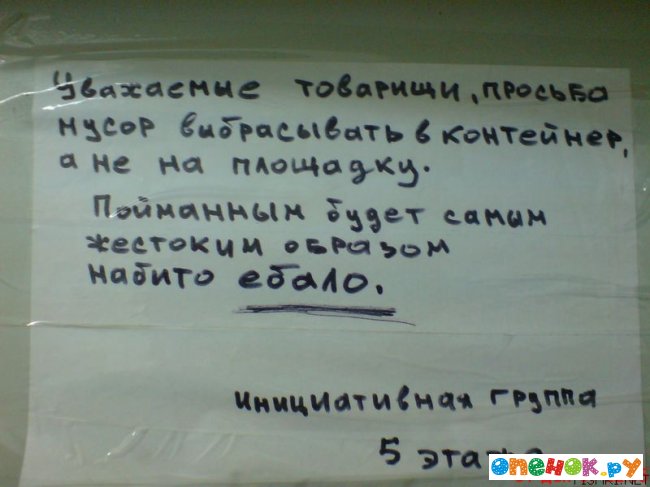 Уважаемые товарищи, просьба
мусор выбрасывать в контейнер,
а не на площадку.
Пойманным будет самым
жестоким образом
набито ебало.
инициативная группа
5 этажа
опенок.ру